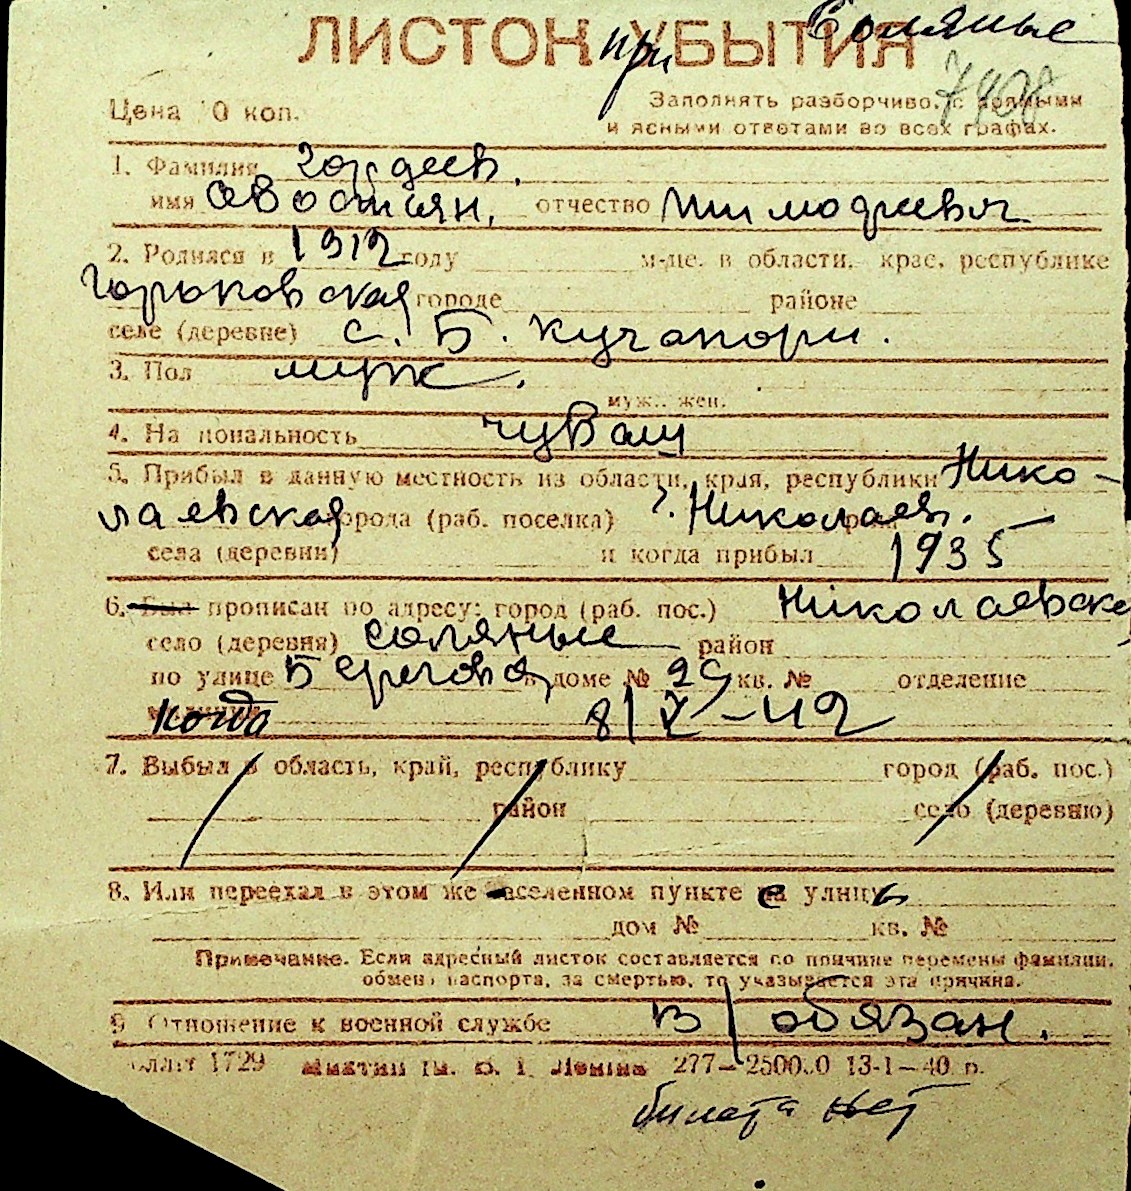 Соляные
ЛИСТОК при УБЫТИЯ
7408
Цена 10 коп.
Заполнять разборчиво, с прямыми
и ясными ответами во всех графах.
1. Фамилия Гордеев,
имя Авостиян, отчество Тимофеевич
2. Родился в 1912 году м-це. в области, крае, республике
Горьковская городе районе
селе (деревне) с. Б. Кучапори.
3. Пол муж.
муж., жен.
4. Национальность чуваш
5. Прибыл в данную местность из области, края, республики Нико-
лаевская города (раб. поселка) г. Николаев.
села (деревни) и когда прибыл 1935
6. Был прописан по адресу: город (раб. пос.) Ніколаевске
село (деревня) соляные район
по улице Берегова в доме № 29 кв. № отделение
когда 8/X-42
7. Выбыл в область, край, республику город (раб. пос.)
район село (деревню)
8. Или переехал в этом же населенном пункте с улицы
дом № кв. №
Примечание. Если адресный листок составляется по причине перемены фамилии,
обмена паспорта, за смертью, то указывается эта причина.
9 Отношение к военной службе в/обязан.
1729 277—2500.0 13-1—40 р.
билета нет